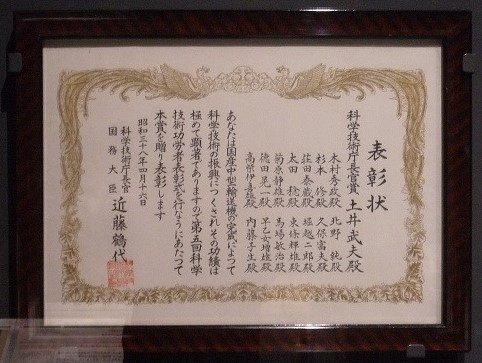 表彰状
科学技術庁長官賞 土井武夫殿
木村秀政殿 北野 純殿
杉本 修殿 久保富夫殿
荘田泰蔵殿 堀越二郎殿
太田 稔殿 東條輝雄殿
菊原静雄殿 馬場敏治殿
徳田晃一殿 早乙女増雄殿
高宗伊喜雄殿 内藤子生殿
あなたは国産中型輸送機の完成によつて
科学技術の振興につくされその功績は
極めて顕著でありますので第五回科学
技術功労者表彰式を行なうにあたつて
本賞を贈り表彰します
昭和三十八年四月十六日
科学技術庁長官
国務大臣 近藤鶴代